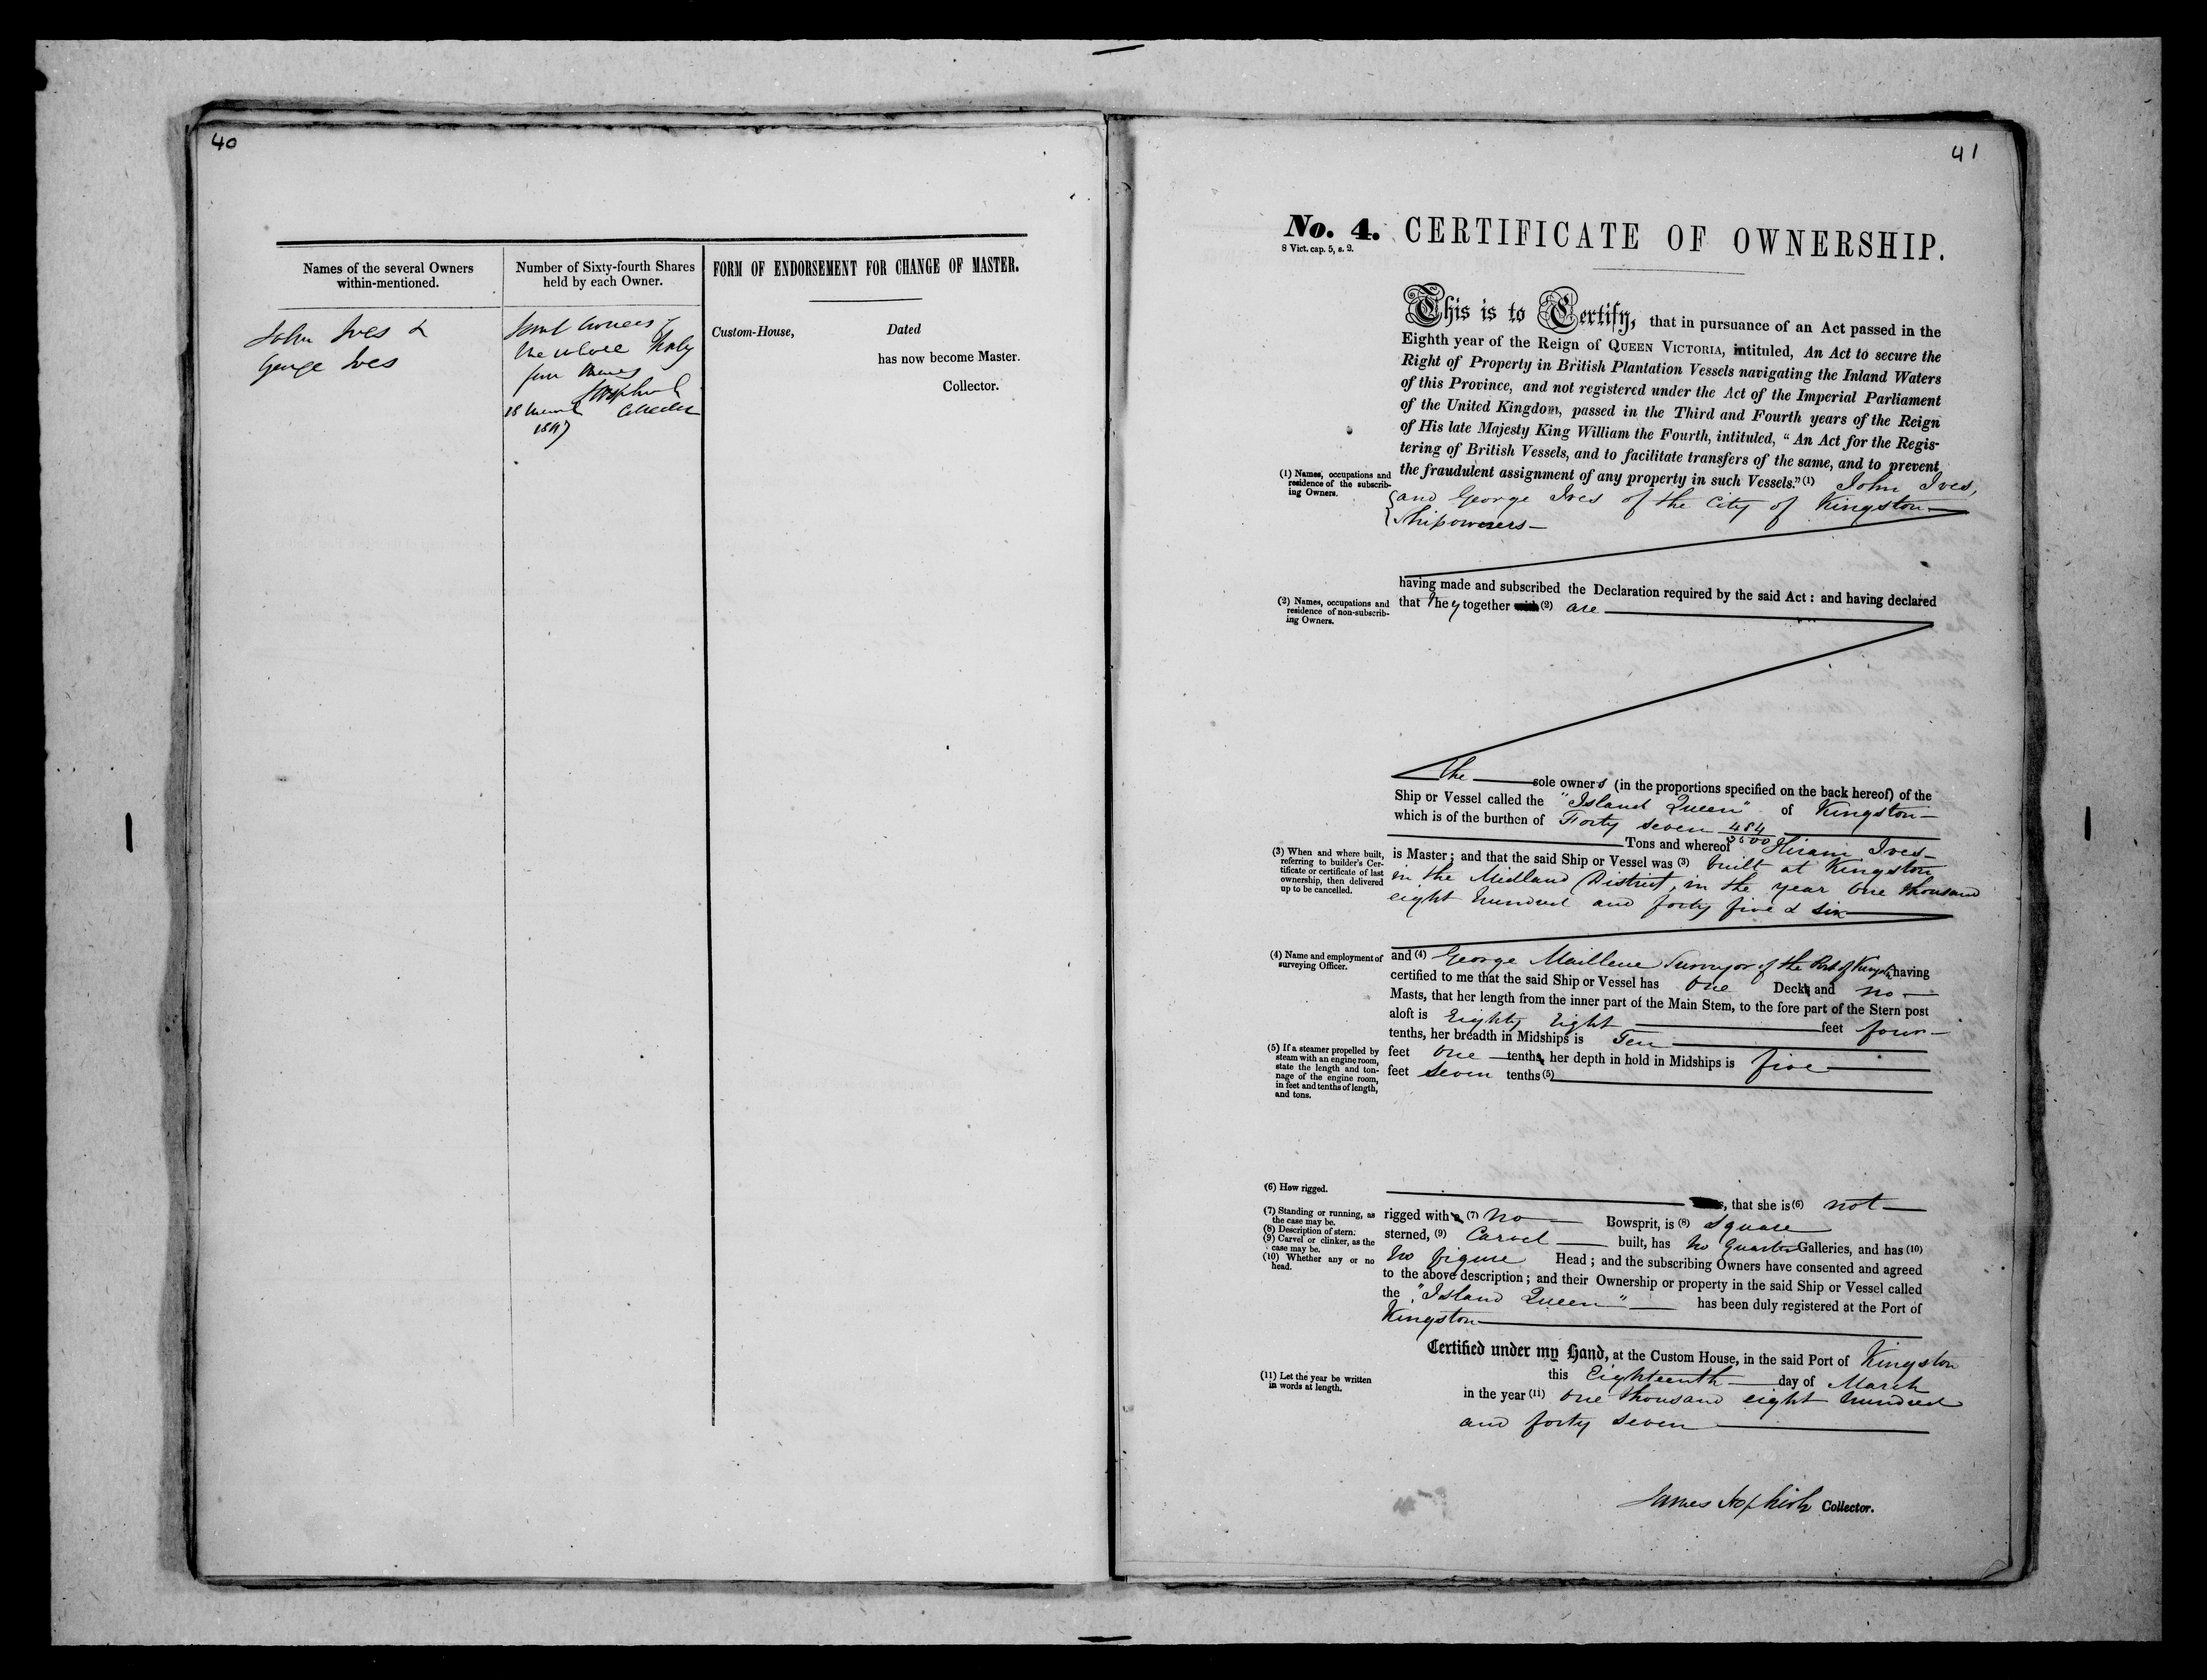 40
Names of the several Owners
within-mentioned.
Number of Sixty-fourth Shares
held by each Owner.
FORM OF ENDORSEMENT FOR CHANGE OF MASTER.
John Ives &
George Ives
Joint Owners of
the whole Sixty
four Shares
18 March Collector
1847
Custom-House, Dated
has now become Master.
Collector.
41
No. 4. CERTIFICATE OF OWNERSHIP.
8 Vict. cap. 5, s. 2.
This is to Certify, that in pursuance of an Act passed in the
Eighth year of the Reign of QUEEN VICTORIA, intituled, An Act to secure the
Right of Property in British Plantation Vessels navigating the Inland Waters
of this Province, and not registered under the Act of the Imperial Parliament
of the United Kingdom, passed in the Third and Fourth years of the Reign
of His late Majesty King William the Fourth, intituled, "An Act for the Regis-
tering of British Vessels, and to facilitate transfers of the same, and to prevent
the fraudulent assignment of any property in such Vessels." (1) John Ives,
(1) Names, occupations and
residence of the subscrib-
ing Owners.
and George Ives of the City of Kingston
Shipowners
having made and subscribed the Declaration required by the said Act: and having declared
that they together with (2) are
(2) Names, occupations and
residence of non-subscrib-
ing Owners.
the sole owners (in the proportions specified on the back hereof) of the
Ship or Vessel called the "Island Queen" of Kingston
which is of the burthen of Forty seven 484/3500
Tons and whereof Hiram Ives
(3) When and where built,
referring to builder's Cer-
tificate or certificate of last
ownership, then delivered
up to be cancelled.
is Master; and that the said Ship or Vessel was (3) built at Kingston
in the Midland District, in the year One thousand
eight hundred and forty five & six
(4) Name and employment of
surveying Officer.
and (4) George Surveyor of the Port of Kingston having
certified to me that the said Ship or Vessel has One Deck and no
Masts, that her length from the inner part of the Main Stem, to the fore part of the Stern post
aloft is Eighty Eight feet four
tenths, her breadth in Midships is Ten
feet one tenth, her depth in hold in Midships is five
feet seven tenths (5)
(5) If a steamer propelled by
steam with an engine room,
state the length and ton-
nage of the engine room,
in feet and tenths of length,
and tons.
(6) How rigged.
, that she is (6) not
(7) Standing or running, as
the case may be.
(8) Description of stern.
(9) Carvel or clinker, as the
case may be.
(10) Whether any or no
head.
rigged with a (7) no Bowsprit, is (8) Square
sterned, (9) Carvel built, has no Quarter Galleries, and has (10)
no figure Head; and the subscribing Owners have consented and agreed
to the above description; and their Ownership or property in the said Ship or Vessel called
the "Island Queen" has been duly registered at the Port of
Kingston
Certified under my Hand, at the Custom House, in the said Port of Kingston
this Eighteenth day of March
(11) Let the year be written
in words at length.
in the year (11) One thousand eight hundred
and forty seven
James Hopkirk Collector.